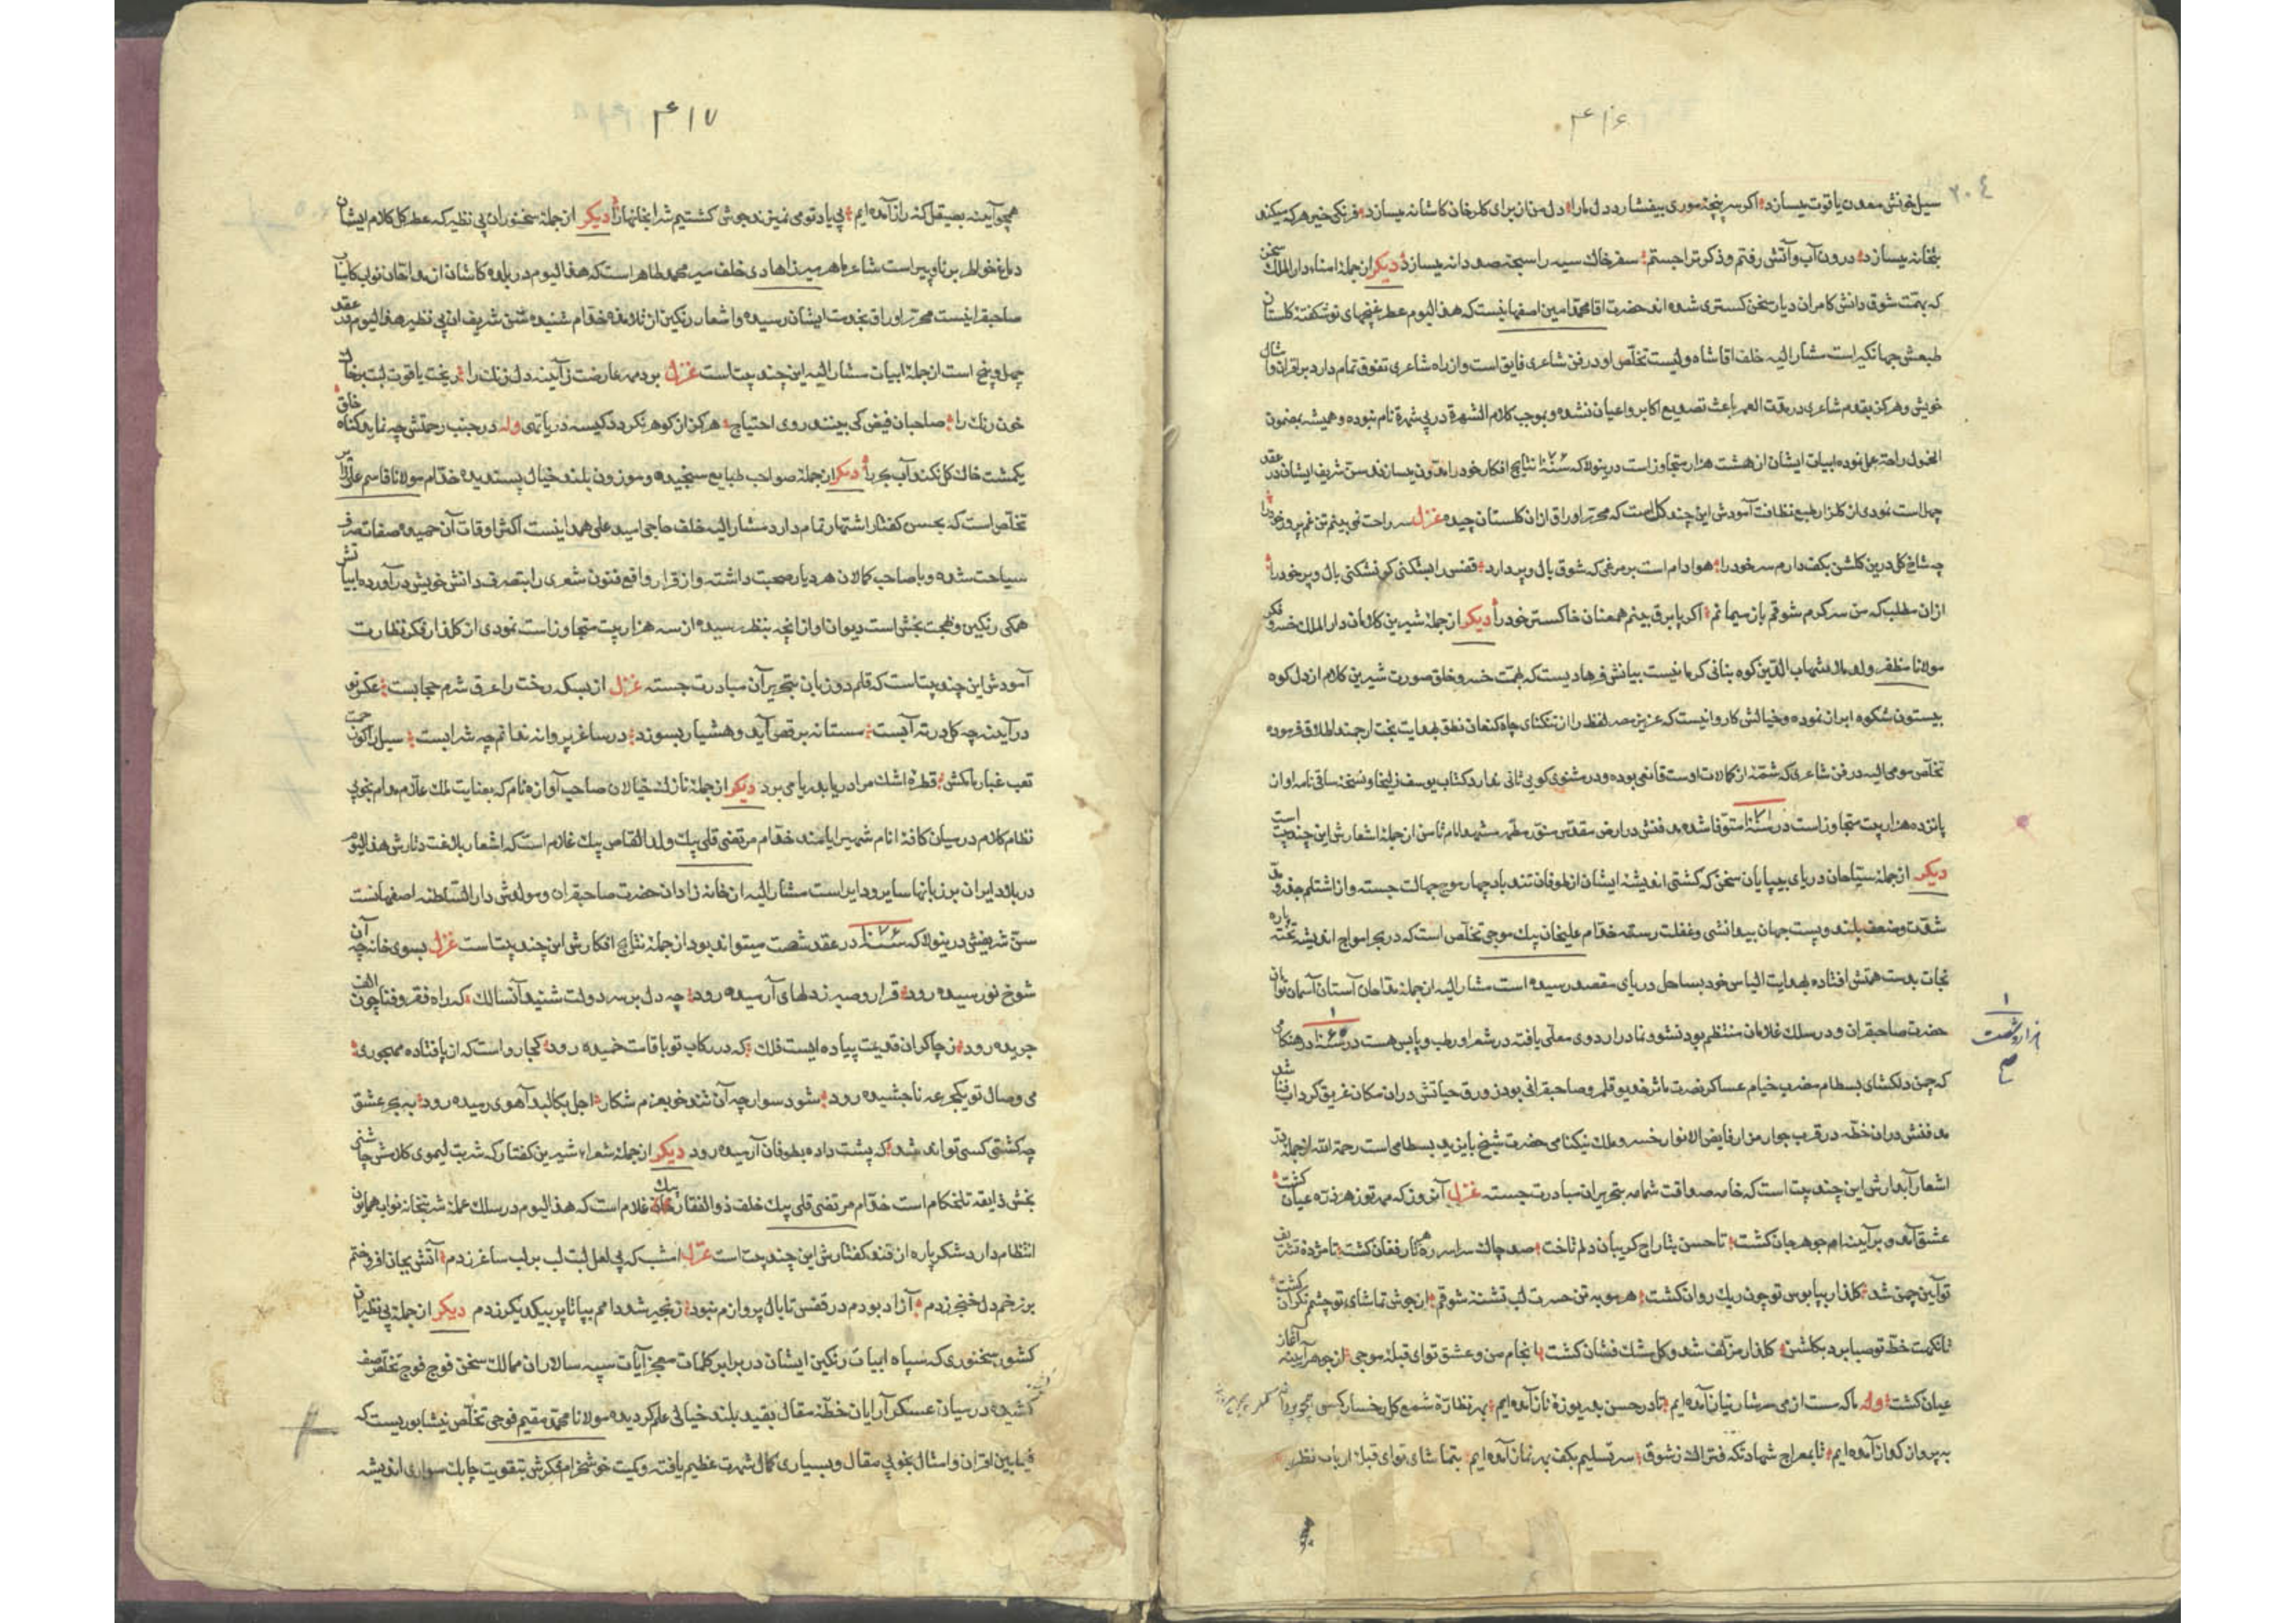 ۴۱۶
۲۰۴
سیل خونش معدن یاقوت میسازد اگر سر پنجهٔ موری بیفشارد دل ما را دل من از برای کلرخان کاشانه میسازد فرنگی خیر هرکه میکند
بتخانه میسازد درون آب و آتش رفتم و ذکر ترا جستم سفر خاك سیه را سبحهٔ صد دانه میسازد دیکر از جملهٔ امناء دار الملك سخن
که بهمت شوق دانش کامران دیار سخن کستری شده اند حضرت اقا محمد امین اصفهانیست که هذا الیوم عطر غنچهای نو شکفته کلستان
طبعش جهانکیر است مشار الیه خلف اقا شاه ولیست تخلص او در فن شاعری فایق است و از راه شاعری تفوق تمام دارد بر اقران و امثال
خویش و هرکز بقدم شاعری در مدت العمر باعث تصدیع اکابر و اعیان نشده و بموجب کلام الشهرة در پی شهرة نام نبوده و همیشه بمضمون
الخمول راحة عمل نموده ابیات ایشان از هشت هزار متجاوز است درینولا که سنه ۱۰۷۶ نتایج افکار خود را مدون میسازند سن شریف ایشان در عقد
چهل است نمودی از کلزار طبع نظافت آمودش این چند کل است که محرر اوراق ازان کلستان چیده غزل سر راحت نمی بینم تن غم پرور خود را
چه شاخ کل درین کلشن بکف دارم سر خود را هوا دام است بر مرغی که شوق بال و پر دارد قفس را بشکنی کو نشکنی بال و پر خود را
ازان مطلب که من سر کرم شوقم باز سیمابم اکر پا برق بینم همعنان خاکستر خود را دیکر از جملهٔ شیرین کلامان دار الملك خسرو فکر
مولانا مظفر ولد ملا شهاب الدین کوه بنانی کرمانیست بیانش فرهادیست که بهمت خسرو خلق صورت شیرین کلام از دل کوه
بیستون شکوه ابراز نموده و خیالش کاروانیست که عزیز مصر لفظ را از تنکنای چاه کنعان نطق بهدایت بخت ارجمند اطلاق فرموده
تخلص مومی الیه در فن شاعری که شمهٔ از کمالات اوست قانعی بوده و در مثنوی کویی ثانی ندارد کتاب یوسف زلیخا و نسخه ساقی نامه او از
پانزده هزار بیت متجاوز است در سنه ۱۰۷۱ متوفا شده مدفنش در ارض مقدس منور مطهر مشهد امام ثامن از جملهٔ اشعارش این چند بیت است
دیکر از جملهٔ سیاحان دریای بیپایان سخن که کشتی اندیشه ایشان از طوفان تند باد چهار موج جهالت جسته و از اشتلم جذر و مد
شدت و ضعف بلند و پست جهان بیدانشی و غفلت رسته خدام علیخان بیك موجی تخلص است که در بحر امواج اندیشه تخته پاره
نجات بدست همتش افتاده بهدایت الیاس خود بساحل دریای مقصد رسیده است مشار الیه از جملهٔ مداحان آستان آسمان توامان
حضرت صاحبقران و در سلك غلامان منتظم بود نشو و نما در اردوی معلی یافته در شعر او رطب و یابس هست در سنه ۱۰۶۵ در هنکامی
که چمن دلکشای بسطام مضرب خیام عساکر نصرت ماثر خدیو قلمرو صاحبقرانی بود زورق حیاتش دران مکان غریق کرداب فنا شد
مدفنش دران خطه در قرب جوار مزار فایض الانوار خسرو ملك نیکنامی حضرت شیخ بایزید بسطامی است رحمة الله از جملهٔ
اشعار آبدارش این چند بیت است که خامه صداقت شمامه بتحریر ان مبادرت جسته غزل آنروز که مهر تو ز هر ذره عیان کشت
عشق آمد و بر آینه ام جوهر جان کشت تا حسن بتاراج کریبان دلم تاخت صد چاك سراسر ره کار فغان کشت تا مژده تشریف
تو آیین چمن شد کلذار بپابوس تو چون ریك روان کشت هر مو به تن حسرت لب تشنهٔ شوقم از جوش تماشای تو چشم نکران کشت
تا نکهت خط تو صبا برد بکلشن کلذار مزلف شد و کل مشك فشان کشت انجام من و عشق تو ای قبلهٔ موجی از جوهر آیینه آغاز
عیان کشت وله ما که مست از می سرشار نیاز آمده ایم تا در حسن بدریوزهٔ ناز آمده ایم بهر نظارهٔ شمع کل رخسار کسی همچو پروانه
به پرواز کداز آمده ایم تا بمعراج شهادتکه فتراك ز شوق سر تسلیم بکف بهر نماز آمده ایم بتماشای تو ای قبلهٔ ارباب نظر
هزار و شصت
۴۱۷
همچو آینه بصیقل کر راز آمده ایم بی یاد تو می نیز ند جوشی کشتیم شرابخانها را دیکر از جملهٔ سخنوران بی نظیر که عطر کل کلام ایشان
دماغ خواطر برنا و پیر است شاعر ماهر میرزا هادی خلف میر محمد طاهر است که هذا الیوم در بلده کاشان از مداحان نواب کامیاب
صاحبقرانیست محرر اوراق بخدمت ایشان رسیده و اشعار رنکین از تلامذه خدام شنیده سن شریف ان بی نظیر هذا الیوم در عقد
چهل و پنج است از جملهٔ ابیات مشار الیه این چند بیت است غزل برد مهر عارضت ز آیینه دل زنك را ریخت یاقوت لبت بر خاك
خون رنك را صاحبان فیض کی بینند روی احتیاج هرکز از کوهر نکردد کیسه دریا تهی وله در جنب رحمتش چه نماید کناه خلق
یکمشت خاك کل نکند آب بحر را دیکر از جملهٔ صواحب طبایع سنجیده و موزون بلند خیال پسندیده خدام مولانا قاسم علی
تخلص است که بحسن کفتار اشتهار تمام دارد مشار الیه خلف حاجی اسید علی همدانیست اکثر اوقات آن حمیده صفات صرف
سیاحت شده و با صاحب کمالان هر دیار صحبت داشته و از قرار واقع فنون شعری را بتصرف دانش خویش در آورده ابیاتش
همکی رنکین و بهجت بخش است دیوان او از آنچه بنظر رسیده از سه هزار بیت متجاوز است نمودی از کلذار فکر نظارت
آمودش این چند بیت است که قلم دو زبان بتحریر آن مبادرت جسته غزل از بسکه رخت را عرق شرم حجابست عکس تو
در آینه چه کل در ته آبست مستانه برقص آید و هشیار بسوزد در ساغر پروانه ندانم چه شرابست سیل را کون رحمت
تعب غبار ما مکش قطرهٔ اشك مرا دریا بدریا می برد دیکر از جملهٔ نازك خیالان صاحب آوازه نام که بعنایت ملك علام مدام بخوبی
نظام کلام در میان کافهٔ انام شهیر ایامند خدام مرتضی قلی بیك ولد القاص بیك غلام است که اشعار بلاغت دثارش هذا الیوم
در بلاد ایران بر زبانها سایر و دایر است مشار الیه از خانه زادان حضرت صاحبقران و مولدش دار السلطنه اصفهانست
سن شریفش درینولا که سنه ۱۰۷۶ در عقد شصت میتواند بود از جملهٔ نتایج افکارش این چند بیت است غزل بسوی خانه چه آن
شوخ نورسیده رود قرار و صبر ز دلهای آرمیده رود چه دل بر سر دولت شنید آنسالك که راه فقر و فنا چون الف
جریده رود ز چاکران قدیمت پیاده ایست فلك که در رکاب تو با قامت خمیده رود کجا رواست که از پا فتاده مهجوری
می وصال تو یکجرعه ناچشیده رود شود سوار چه آن تند خو بعزم شکار اجل بکالبد آهوی رمیده رود به بحر عشق
چه کشتی کسی تواند شد که پشت داده بطوفان آرمیده رود دیکر از جملهٔ شعراء شیرین کفتار که شربت لیموی کلامش چاشنی
بخش ذایقه تلخکام است خدام مرتضی قلی بیك خلف ذو الفقار بیك غلام است که هذا الیوم در سلك عملهٔ شربتخانه نواب همایون
انتظام دارد شکر پاره از قند کفتارش این چند بیت است غزل امشب که بی لعل لبت لب بر لب ساغر زدم آتش بجان افروختم
بر زخم دل خنجر زدم آزاد بودم در قفس تا بال پروازم نبود زنجیر شد دامم بپا تا پر بیکدیکر زدم دیکر از جملهٔ بی نظیران
کشور سخنوری که سپاه ابیات رنکین ایشان در برابر کلمات معجز آیات سپه سالاران ممالك سخن فوج فوج تخلص صف
کشیده در میان عسکر آرایان خطهٔ مقال بقید بلند خیالی علم کردیده مولانا محمد مقیم فوجی تخلص نیشابوریست که
فیمابین اقران و امثال بخوبی مقال و بسیاری کمال شهرت عظیم یافته و کمیت خوشخرام فکرش بتقویت چابك سواری اندیشه